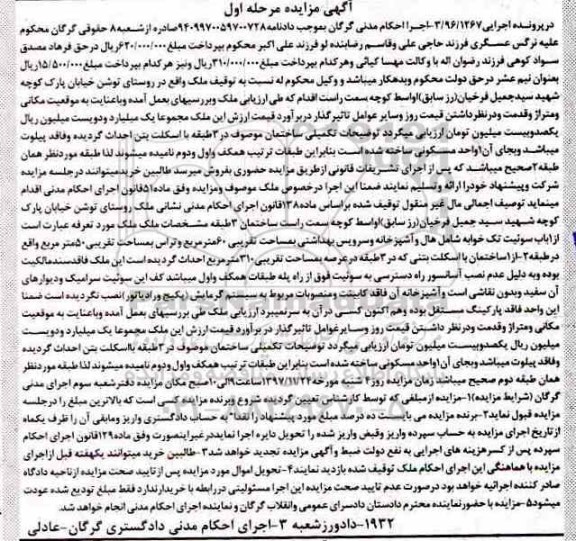 آگهی مزایده مرحله اول
در پرونده اجرایی ۳/۹۶/۱۲۶۷-اجرا احکام مدنی گرگان بموجب دادنامه ۹۴۰۹۹۷۰۰۵۹۷۰۰۷۲۸ صادره از شعبه ۸ حقوقی گرگان محکوم
علیه نرگس عسگری فرزند حاجی علی وقاسم رضابنده لو فرزند علی اکبر محکوم بپرداخت مبلغ ۶۲۰/۰۰۰/۰۰۰ ریال در حق فرهاد مصدق
سواد کوهی فرزند رضوان اله با وکالت مهسا کیانی وهرکدام بپرداخت مبلغ ۳۱۰/۰۰۰/۰۰۰ ریال ونیز هرکدام بپرداخت مبلغ ۱۵/۵۰۰/۰۰۰ ریال
بعنوان نیم عشر در حق دولت محکوم وبدهکار میباشد و وکیل محکوم له نسبت به توقیف ملک واقع در روستای توشن خیابان پارک کوچه
شهید سیدجمیل فرخیان(رز سابق)اواسط کوچه سمت راست اقدام که طی ارزیابی ملک وبررسیهای بعمل آمده وباعنایت به موقعیت مکانی
ومتراژ وقدمت ودرنظرداشتن قیمت روز وسایر عوامل تاثیرگذار در برآورد قیمت ارزش این ملک مجموعا یک میلیارد ودویست میلیون ریال
یکصدوبیست میلیون تومان ارزیابی میگردد توضیحات تکمیلی ساختمان موصوف در ۳طبقه با اسکلت بتن احداث گردیده وفاقد پیلوت
میباشد وبجای آن ۱واحد مسکونی ساخته شده است بنابراین طبقات ترتیب همکف واول ودوم نامیده میشوند لذا طبقه موردنظر همان
طبقه ۲صحیح میباشد که پس از اجرای تشریفات قانونی ازطریق مزایده حضوری بفروش میرسد طالبین خریدمیتوانند درجلسه مزایده
شرکت وپیشنهاد خودرا ارائه وتسلیم نمایند ضمنا این اجرا در خصوص ملک موصوف ومزایده وفق ماده ۵۱قانون اجرای احکام مدنی اقدام
مینماید توصیف اجمالی مال غیر منقول توقیف شده براساس ماده ۱۳۸قانون اجرای احکام مدنی نشانی ملک روستای توشن خیابان پارک
کوچه شهید سید جمیل فرخیان(رز سابق)اواسط کوچه سمت راست ساختمان ۳طبقه مشخصات ملک ملک مورد تعرفه عبارت است
ازاباب سوئیت تک خوابه شامل هال وآشپزخانه وسرویس بهداشتی بمساحت تقریبی ۶۰مترمربع وتراس بمساحت تقریبی ۵۰متر مربع واقع
در طبقه ۲-از۱ساختمان با اسکلت بتنی که در ۳طبقه درعرصه بمساحت تقریبی ۳۱۰مترمربع احداث گردیده است این ملک فاقدسندمالکیت
بوده وبه دلیل عدم نصب آسانسور راه دسترسی به سوئیت فوق از راه پله طبقات همکف واول میباشد کف این سوئیت سرامیک ودیوارهای
آن سفید وبدون نقاشی است وآشپزخانه آن فاقد کابینت ومنصوبات مربوط به سیستم گرمایش(پکیج ورادیاتور)نصب نگردیده است ضمنا
این واحد فاقد پارکینگ مستقل بوده وهم اکنون کسی در آن به سرنمیبرد ارزیابی ملک طی بررسیهای بعمل آمده وباعنایت به موقعیت
مکانی ومتراژ وقدمت ودرنظر داشتن قیمت روز وسایرعوامل تاثیرگذار در برآورد قیمت ارزش این ملک مجموعا یک میلیارد ودویست
میلیون ریال یکصدوبیست میلیون تومان ارزیابی میگردد توضیحات تکمیلی ساختمان موصوف در ۳طبقه بااسکلت بتن احداث گردیده
وفاقد پیلوت میباشد وبجای آن ۱واحدمسکونی ساخته شده است بنابراین طبقات به ترتیب همکف واول ودوم نامیده میشوند لذا طبقه موردنظر
همان طبقه دوم صحیح میباشد زمان مزایده روز ۲ شنبه مورخه ۱۳۹۷/۱۱/۲۲ساعت ۹الی ۱۰صبح مکان مزایده دفترشعبه سوم اجرای مدنی
گرگان (شرایط مزایده)۱-مزایده ازمبلغی که توسط کارشناس تعیین گردیده شروع وبرنده مزایده کسی است که بالاترین مبلغ را درجلسه
مزایده قبول نماید ۲-برنده مزایده می بایست ده درصد مبلغ مورد پیشنهاد را نقدا" به حساب دادگستری واریز ومابقی آن را ظرف یکماه
ازتاریخ اجرای مزایده به حساب سپرده واریز وقبض واریز شده را تحویل دایره اجرا نمایددرغیراینصورت وفق ماده ۱۲۹قانون اجرای احکام
سپرده پس از کسرهزینه های اجرایی به نفع دولت ضبط وآگهی مزایده تجدید خواهد شد ۳-طالبین خرید میتوانند یکهفته قبل ازاجرای
مزایده با هماهنگی این اجرای احکام ملک توقیف شده بازدید نمایند ۴-تحویل اموال مورد مزایده پس از تایید صحت مزایده ازناحیه دادگاه
صادر کننده اجرائیه خواهد بود درصورت عدم تایید صحت مزایده این اجرا مسئولیتی دررابطه با خریدارندارد فقط مبلغ تودیع شده عودت
میشود ۵-مزایده با حضورنماینده محترم دادستان دادسرای عمومی وانقلاب گرگان و نماینده اجرای احکام مدنی انجام خواهد شد.
۱۹۳۲-دادورزشعبه ۳-اجرای احکام مدنی دادگستری گرگان-عادلی